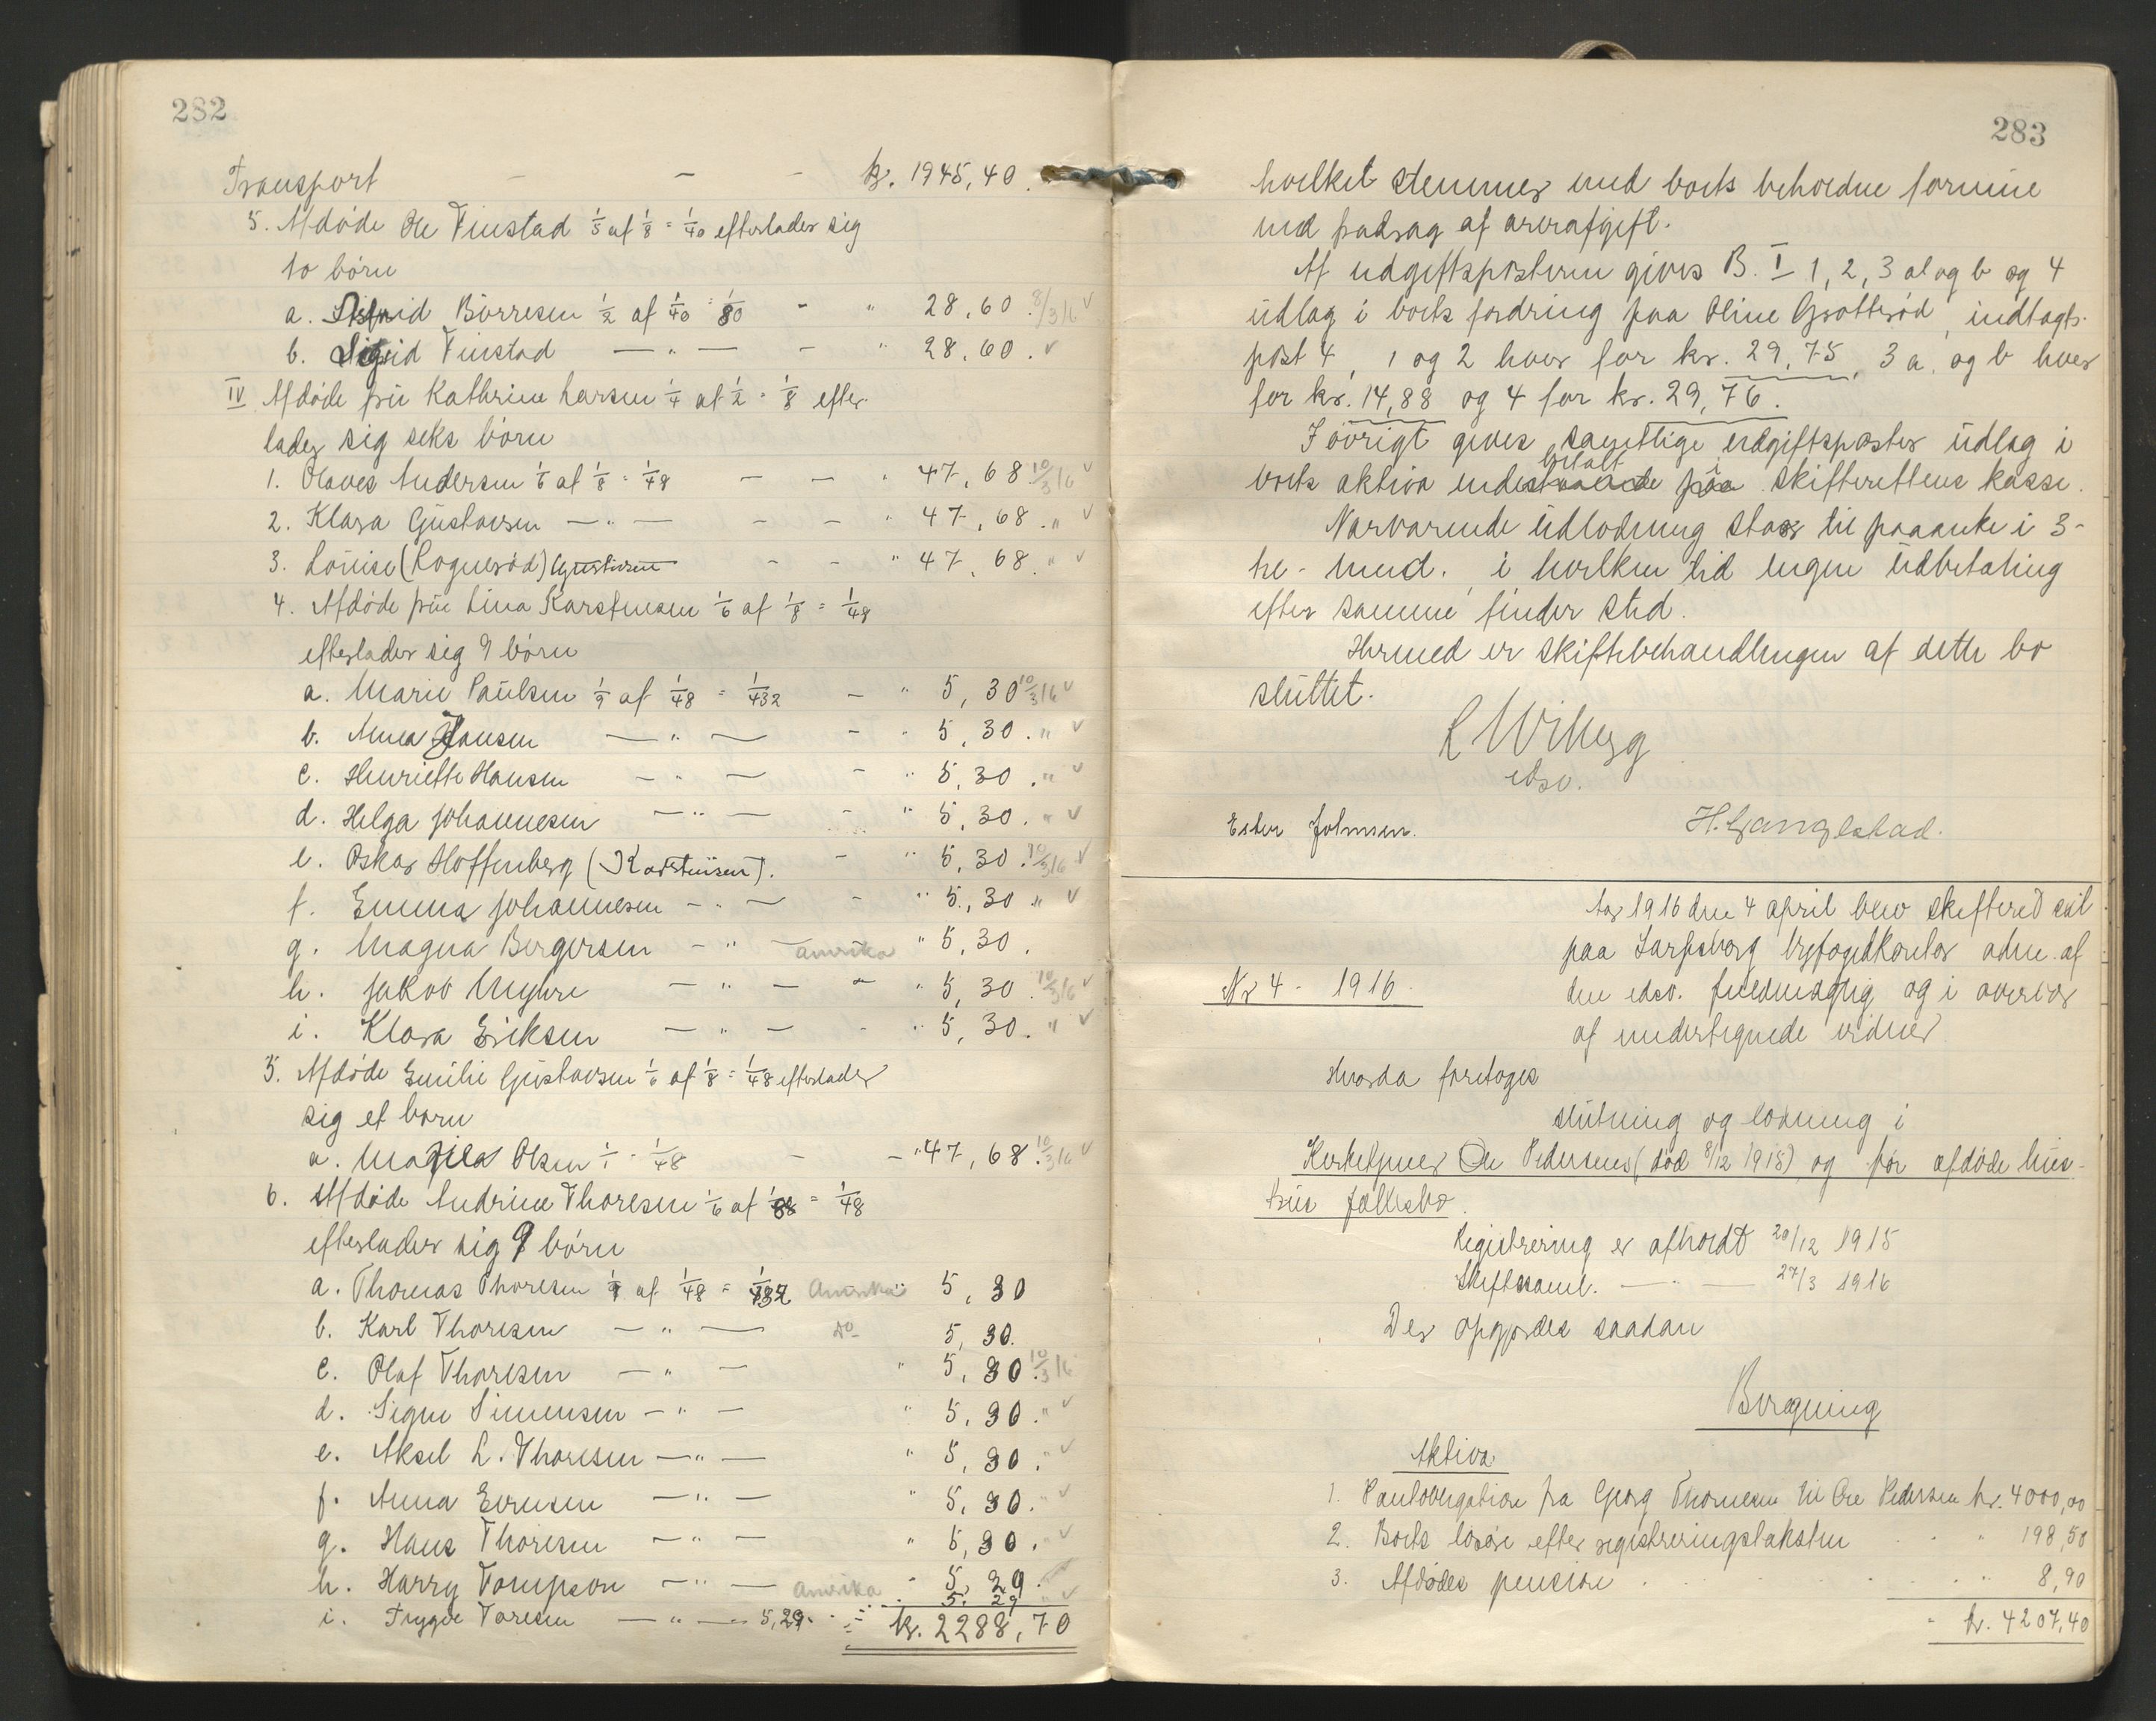 282
Transport - - - kr. 1945,40.
5. Afdøde Ole Finstad 1/5 af 1/8 = 1/40 efterlader sig
to børn
a. Astrid Børresen 1/2 af 1/40 = 1/80 - " 28,60. 8/3 16 ✓
b. Sigrid Finstad — " — - " 28,60. ✓
IV Afdøde frü Kathrine Larsen 1/4 af 1/2 = 1/8 efter-
lader sig seks børn
1. Olaves Andersen 1/6 af 1/8 = 1/48 - - " 47,68 10/3 16 ✓
2. Klara Güstavsen — " — - - " 47,68. " ✓
3. Loüise (Rognerød) Güstavsen - - " 47,68. " ✓
4. Afdøde frü Lina Karstensen 1/6 af 1/8 = 1/48
efterlader sig 9 børn
a. Marie Paülsen 1/9 af 1/48 = 1/432 - " 5,30 10/3 16 ✓
b. Anna Hansen — " — - " 5,30. " ✓
c. Henriette Hansen — " — - " 5,30. " ✓
d. Helga Johannesen — " — - " 5,30. " ✓
e. Oskar Hoffenberg (Karstensen). - " 5,30. 10/3 16 ✓
f. Emma Johannesen — " — - " 5,30 " ✓
g. Magna Bergersen — " — Amerika " 5,30.
h. Jakob Myhre — " — - " 5,30. 10/3 16 ✓
i. Klara Eriksen — " — - " 5,30. " ✓
5. Afdøde Emilie Güstavsen 1/6 af 1/8 = 1/48 efterlader
sig et barn
a. Olsen 1/1 - 1/48 - - " 47,68. 10/3 16 ✓
6. Afdøde Andrine Thoresen 1/6 af 1/8 = 1/48
efterlader sig 9 børn
a. Thomas Thoresen 1/9 af 1/48 = 1/432 Amerika " 5,30
b. Karl Thoresen — " — do 5,30.
c. Olaf Thoresen — " — " 5,30 10/3 16
d. Signe Simensen — " — " 5,30. " ✓
e. Aksel L. Thoresen — " — " 5,30. " ✓
f. Anna Evensen — " — " 5,30. " ✓
g. Hans Thoresen — " — " 5,30. " ✓
h. Harry Tompson — " — Amerika - 5,29.
i. Trygve Toresen — " — 5,29. 5,29 " ✓
kr. 2288,70
283
hvilket stemmer med boets beholdne formüe
med fradrag af arveafgift.
Af udgiftsposterne gives B. I 1, 2, 3 a og b og 4
üdlæg i boets fordring paa Oline Grotterød, indtægts-
post 4, 1 og 2 hver for kr. 29,75, 3 a. og b hver
for kr. 14,88 og 4 for kr. 29,76.
I øvrigt gives samtlige üdgiftsposter üdlæg i
boets aktiva indestaaende paa betalt i skifterettens kasse.
Nærværende üdlodning staar til paaanke i 3-
tre - mnd. i hvilken tid ingen üdbetaling
efter samme finder sted.
Hermed er skiftebehandlingen af dette bo
slüttet.
L Wiberg
edsv.
Ester Johnsen. H. Gangestad.
Aar 1916 den 4 april blev skifteret sat
paa Sarpsborg byfogedkontor adm. af
Nr 4 - 1916. den edsv. füldmægtig og i overvær
af undertegnede vidner
Hvorda foretoges
slütning og lodning i
Kirketjener Ole Pedersens (død 8/12 1915) og før afdøde hüs-
trüs fællesbo.
Registrering er afholdt 20/12 1915
Skiftesaml. — " — 27/3 1916
Der opgjordes saadan
Beregning
Aktiva
1. Pantobligation fra Georg Thomesen til Ole Pedersen kr. 4000,00
2. Boets løsøre efter registreringstaksten . " 198,50
3. Afdødes pension . . . . " 8,90
- kr. 4207,40